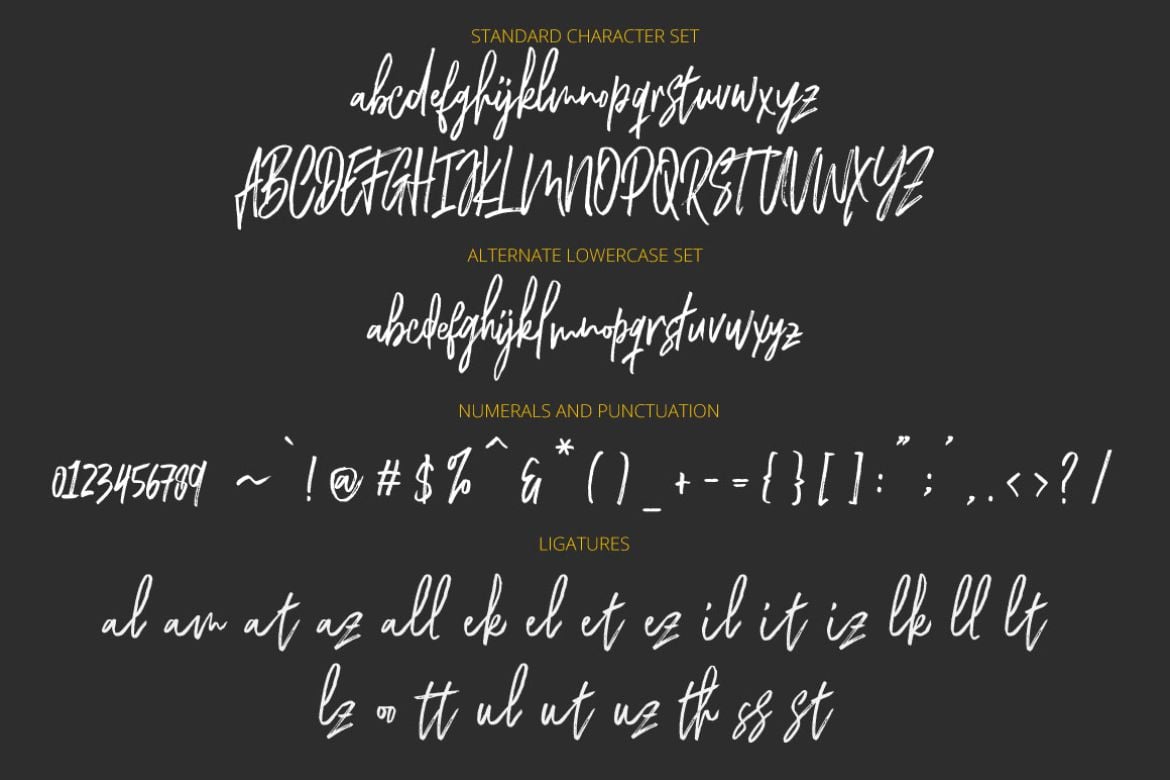 STANDARD CHARACTER SET
abcdefghijklmnopqrstuvwxyz
ABCDEFGHIJKLMNOPQRSTUVWXYZ
ALTERNATE LOWERCASE SET
abcdefghijklmnopqrstuvwxyz
NUMERALS AND PUNCTUATION
0123456789 ~ ` ! @ # $ % ^ & * ( ) _ + - = { } [ ] : " ; ' , . < > ? /
LIGATURES
al am at az all ek el et ez il it iz lk ll lt
lz oo tt ul ut uz th ss st